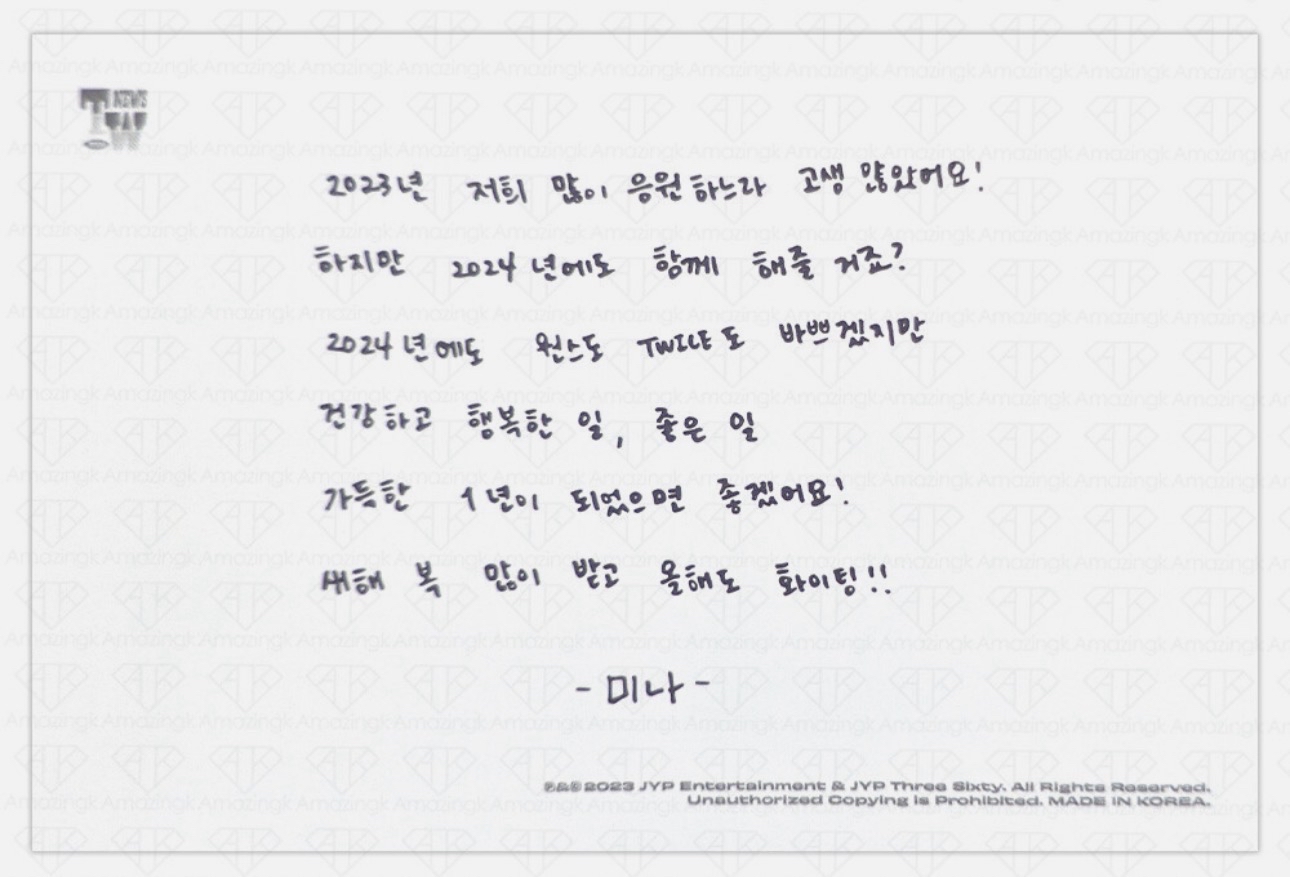 2023년 저희 많이 응원하느라 고생 많았어요!
하지만 2024년에도 함께 해줄 거죠?
2024년에도 원스도 TWICE도 바쁘겠지만
건강하고 행복한 일, 좋은 일
가득한 1년이 되었으면 좋겠어요!
새해 복 많이 받고 올해도 화이팅!!
- 미나 -
℗&© 2023 JYP Entertainment & JYP Three Sixty. All Rights Reserved.
Unauthorized Copying is Prohibited. MADE IN KOREA.
Amazingk